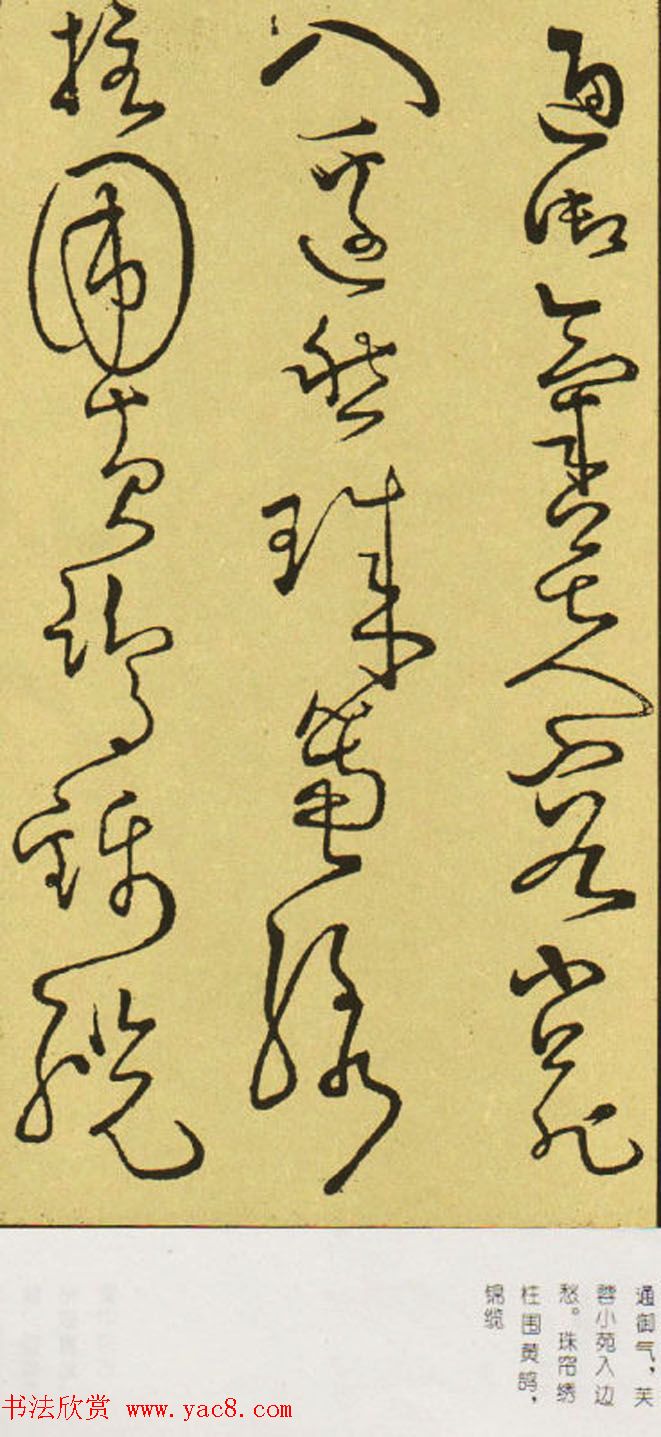 通御气芙蓉小苑
入边愁珠帘绣
柱围黄鹄锦缆
通御气，芙
蓉小苑入边
愁。珠帘绣
柱围黄鹄，
锦缆
书法欣赏 www.yac8.com